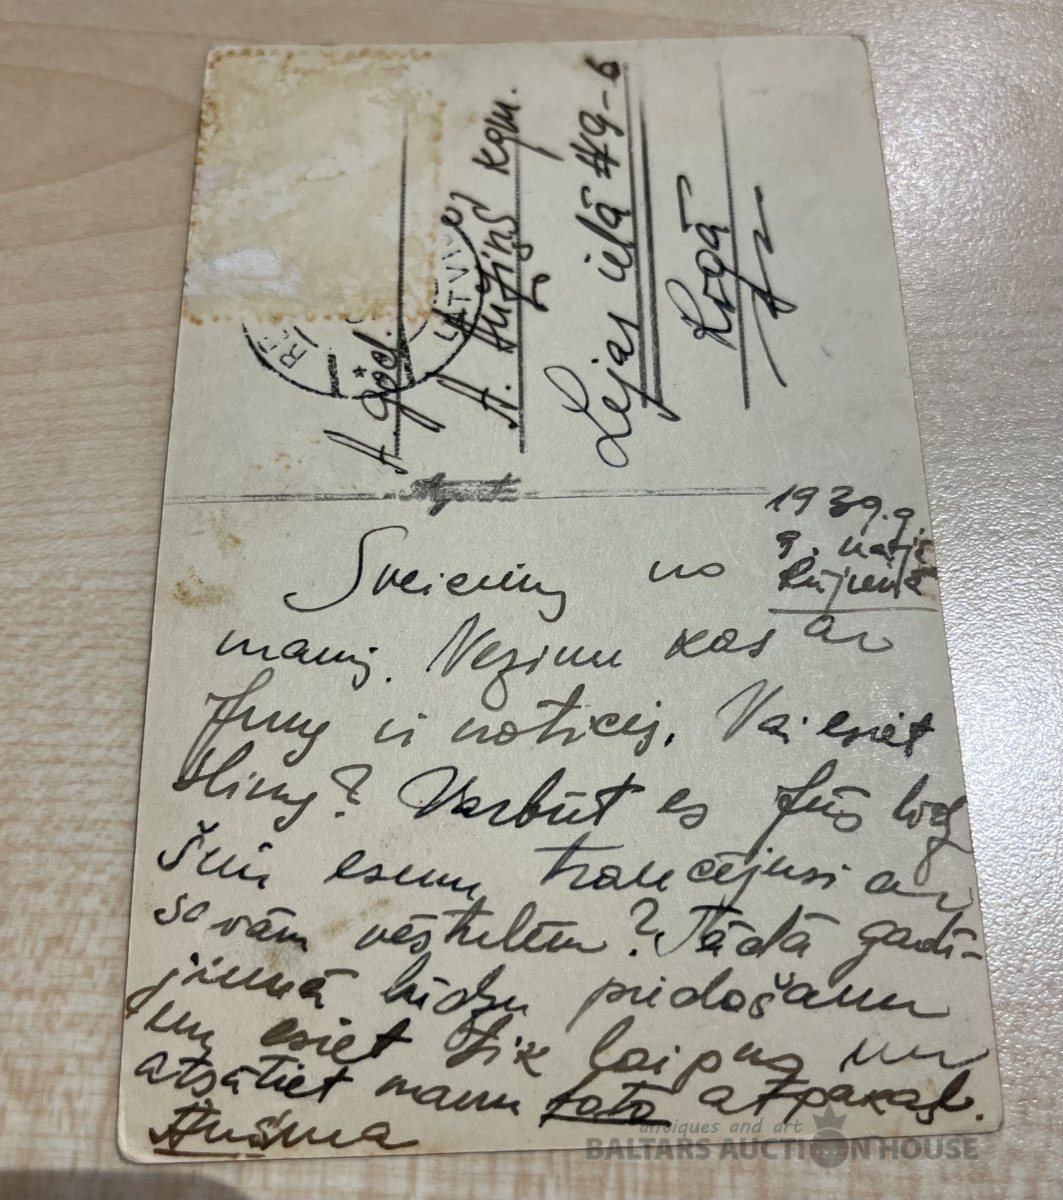 A. god.
A. Aužiņš kgm.
Lejas ielā #9-6
Rīgā
LATVIJ
1939.g.
9. martā
Rūjienā
Sveiciens no
manis. Nezinu kas ar
Jums ir noticis. Vai esiet
slims? Varbūt es Jūs
esmu traucējusi ar
savām vēstulēm? Tādā gadī-
jienā lūdzu piedošanu
un esiet tik laipns un
atsūtiet manu foto atpakaļ.
Aušma
antiques and art
BALTARS AUCTION HOUSE